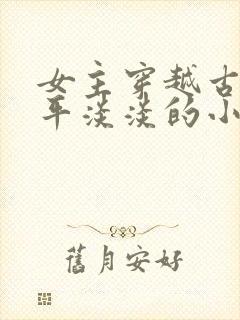 女主穿越古
平淡淡的小
舊月安好